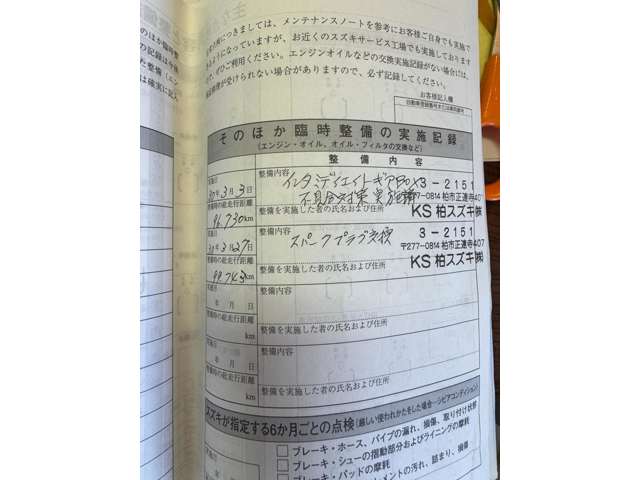 実施につきましては、メンテナンスノートを参考にお客様ご自身でも実施で
きるようになっていますが、お近くのスズキサービス工場でも実施しております
ので、ぜひご利用ください。エンジンオイルなどの交換実施記録がない場合は、
保証修理が受けられない場合がありますので、必ず記録してください。
お客様記入欄
自動車登録番号または車両番号
そのほか臨時整備の実施記録
(エンジン・オイル、オイル・フィルタの交換など)
整備内容
実施日
整備内容
インタミディエイトギアBOX
3-2151
3月3日
不具合対策実施済
〒277-0814 柏市正連寺407
整備時の総走行距離
整備を実施した者の氏名および住所
KS 柏スズキ㈱
96,730km
実施日
整備内容
スパークプラグ交換
3-2151
日
〒277-0814 柏市正連寺407
整備時の総走行距離
KS 柏スズキ㈱
99,743km
整備を実施した者の氏名および住所
実施日
整備内容
年 月 日
整備時の総走行距離
整備を実施した者の氏名および住所
km
実施日
整備内容
年 月 日
整備時の総走行距離
整備を実施した者の氏名および住所
km
スズキが指定する6か月ごとの点検(厳しい使われかたをした場合…シビアコンディション)
□ブレーキ・ホース、パイプの漏れ、損傷、取り付け状態
□ブレーキ・シューの摺動部分およびライニングの摩耗
□ブレーキ・パッドの摩耗
メントの汚れ、詰まり、損傷